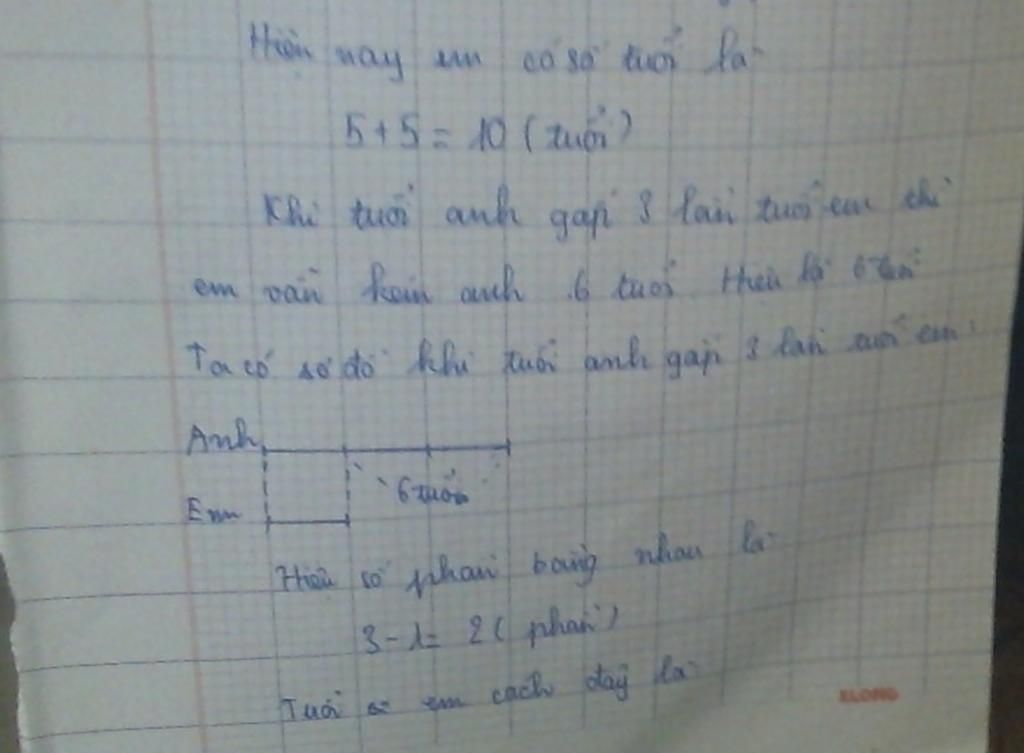 Hiện nay em có số tuổi là
5 + 5 = 10 (tuổi)
Khi tuổi anh gấp 3 lần tuổi em thì
em vẫn kém anh 6 tuổi. Hiệu là 6 tuổi
Ta có sơ đồ khi tuổi anh gấp 3 lần tuổi em:
Anh
6 tuổi
Em
Hiệu số phần bằng nhau là
3 - 1 = 2 (phần)
Tuổi em cách đây là
KLONG